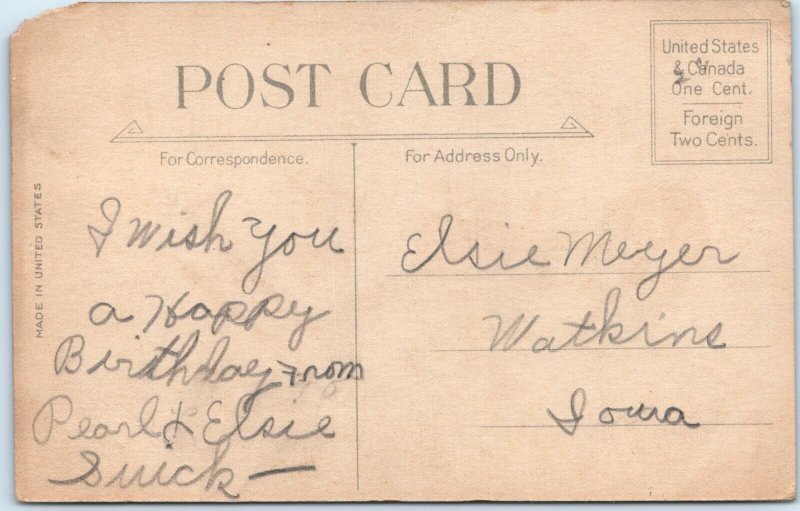 POST CARD
United States
& Canada
One Cent.
Foreign
Two Cents.
For Correspondence.
For Address Only.
MADE IN UNITED STATES
I Wish You
a Happy
Birthday From
Pearl & Elsie
Elsie Meyer
Watkins
Iowa